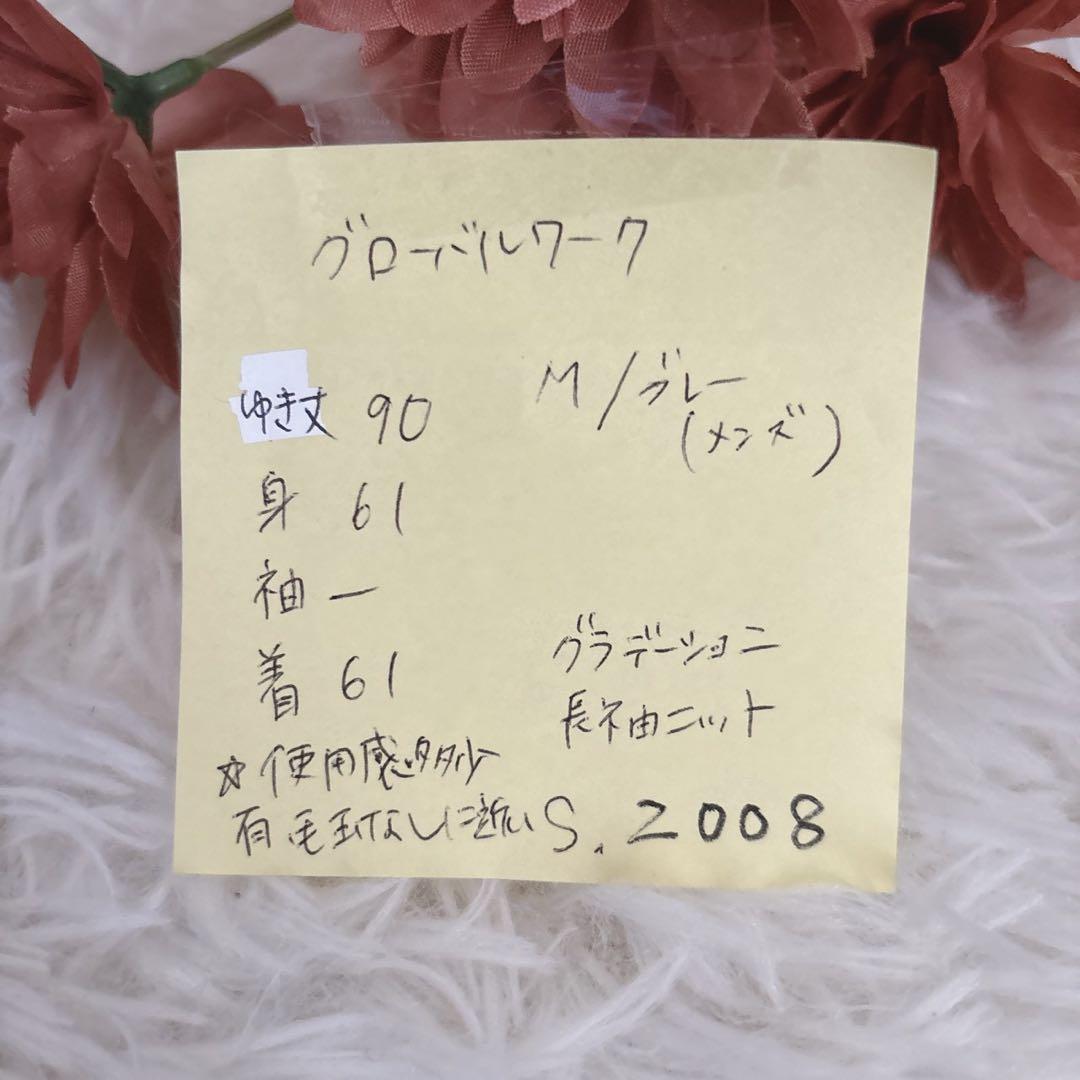 グローバルワーク
M/グレー
(メンズ)
ゆき丈 90
身 61
袖 ー
着 61
グラデーション
長袖ニット
☆使用感多少
有 毛玉なしに近い
S. 2008